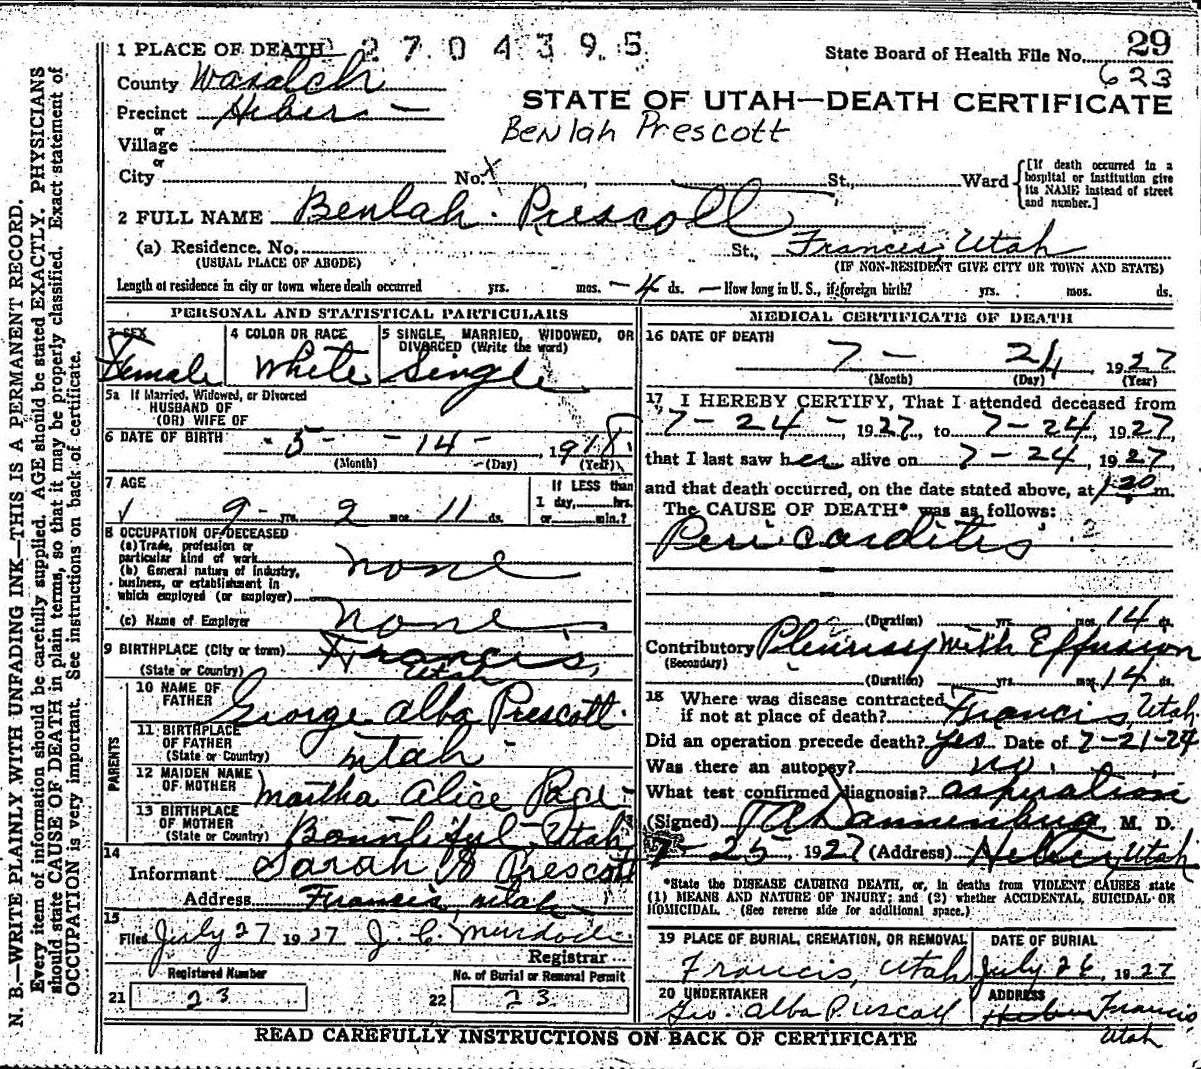 1 PLACE OF DEATH 2 7 0 4 3 9 5
State Board of Health File No. 29
County Wasatch
623
Precinct Heber
STATE OF UTAH—DEATH CERTIFICATE
or
Beulah Prescott
Village
or
City No. X St., Ward
[If death occurred in a hospital or institution give its NAME instead of street and number.]
2 FULL NAME Beulah Prescott
(a) Residence, No. St., Francis, Utah
(USUAL PLACE OF ABODE) (IF NON-RESIDENT GIVE CITY OR TOWN AND STATE)
Length of residence in city or town where death occurred yrs. mos. 4 ds. How long in U. S., if foreign birth? yrs. mos. ds.
PERSONAL AND STATISTICAL PARTICULARS
3 SEX
Female
4 COLOR OR RACE
White
5 SINGLE, MARRIED, WIDOWED, OR
DIVORCED (Write the word)
Single
5a If Married, Widowed, or Divorced
HUSBAND OF
(OR) WIFE OF
6 DATE OF BIRTH 5 - 14 - , 1918.
(Month) (Day) (Year)
7 AGE
If LESS than
1 day, hrs.
9 yrs. 2 mos. 11 ds. or min.?
8 OCCUPATION OF DECEASED
(a) Trade, profession or
particular kind of work none
(b) General nature of industry,
business, or establishment in
which employed (or employer)
(c) Name of Employer none
9 BIRTHPLACE (City or town) Francis,
(State or Country) Utah
PARENTS
10 NAME OF
FATHER George Alba Prescott
11 BIRTHPLACE
OF FATHER
(State or Country) Utah
12 MAIDEN NAME
OF MOTHER Martha Alice Pace
13 BIRTHPLACE
OF MOTHER
(State or Country) Bountiful, Utah
14
Informant Sarah Prescott
Address Francis, Utah
15
Filed July 27 1927 J. C. Murdock
Registrar
Registered Number
21 23
No. of Burial or Removal Permit
22 23
MEDICAL CERTIFICATE OF DEATH
16 DATE OF DEATH
7 - 24, 1927
(Month) (Day) (Year)
17 I HEREBY CERTIFY, That I attended deceased from
7 - 24 - , 1927, to 7 - 24, 1927,
that I last saw her alive on 7 - 24, 1927,
and that death occurred, on the date stated above, at 1 20 m.
The CAUSE OF DEATH* was as follows:
Pericarditis
(Duration) yrs. mos. 14 ds.
Contributory Pleurisy with Effusion
(Secondary)
(Duration) yrs. mos. 14 ds.
18 Where was disease contracted
if not at place of death? Francis, Utah
Did an operation precede death? yes Date of 7-21-24
Was there an autopsy? no.
What test confirmed diagnosis? aspiration
(Signed) Dannenburg, M. D.
7 - 25, 1927 (Address) Heber, Utah
*State the DISEASE CAUSING DEATH, or, in deaths from VIOLENT CAUSES state
(1) MEANS AND NATURE OF INJURY; and (2) whether ACCIDENTAL, SUICIDAL OR
HOMICIDAL. (See reverse side for additional space.)
19 PLACE OF BURIAL, CREMATION, OR REMOVAL
Francis, Utah
DATE OF BURIAL
July 26, 1927
20 UNDERTAKER
Geo. Alba Prescott
ADDRESS
Heber Francis,
Utah
READ CAREFULLY INSTRUCTIONS ON BACK OF CERTIFICATE
N. B.—WRITE PLAINLY WITH UNFADING INK—THIS IS A PERMANENT RECORD.
Every item of information should be carefully supplied. AGE should be stated EXACTLY. PHYSICIANS
should state CAUSE OF DEATH in plain terms, so that it may be properly classified. Exact statement of
OCCUPATION is very important. See instructions on back of certificate.